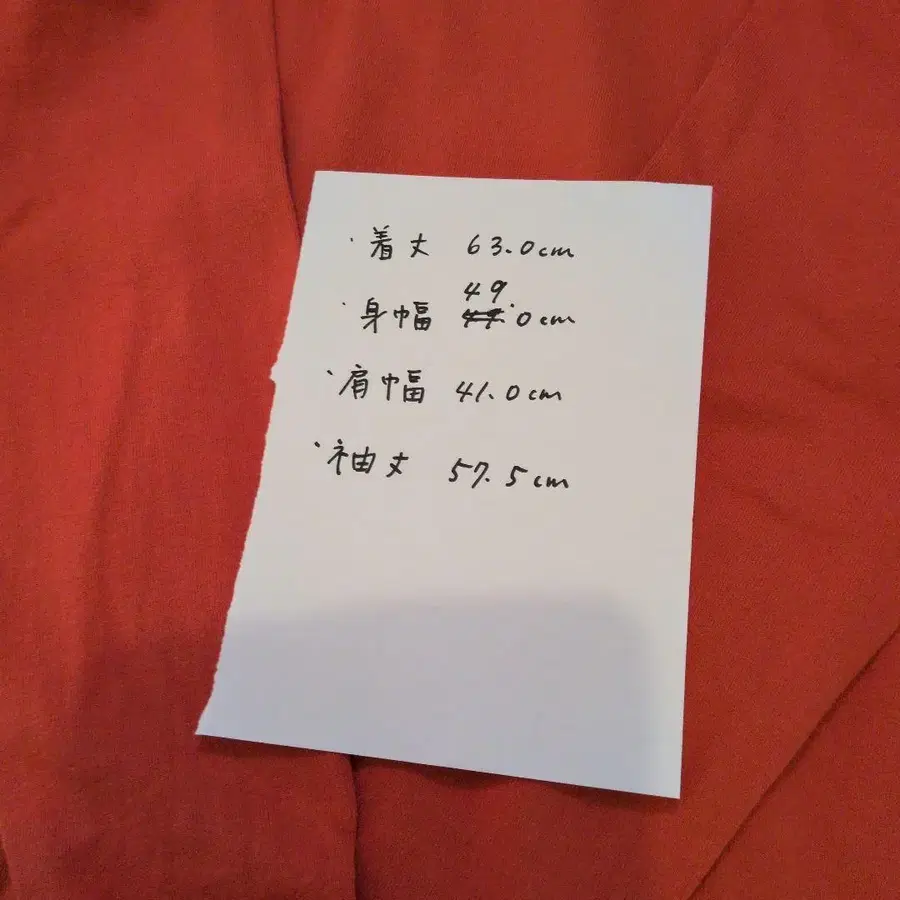 ・着丈 63.0cm
・身幅 49.0cm
・肩幅 41.0cm
・袖丈 57.5cm